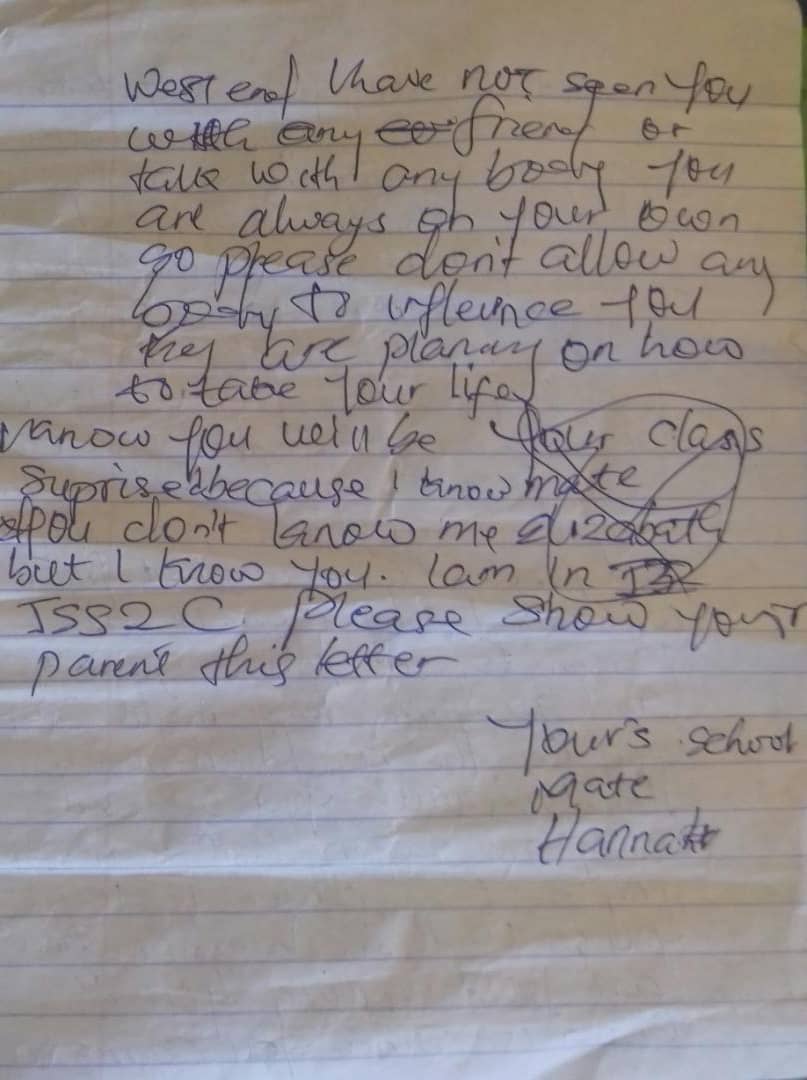 West end I have not seen you
with any friend or
talk with any body you
are always on your own
so please don't allow any
body to influence you
they are planing on how
to take your life
I know you will be your class
suprised because I know mate
you don't know me Elizabeth
but I know you. I am in
JSS2 C. Please show your
parent this letter
Your's school
Mate
Hannah